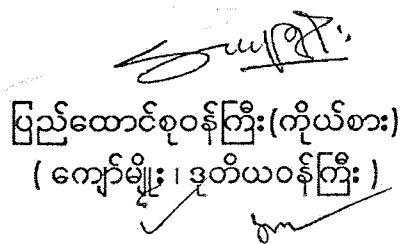 ပြည်ထောင်စုဝန်ကြီး(ကိုယ်စား)
( ကျော်မျိုး ၊ ဒုတိယဝန်ကြီး )